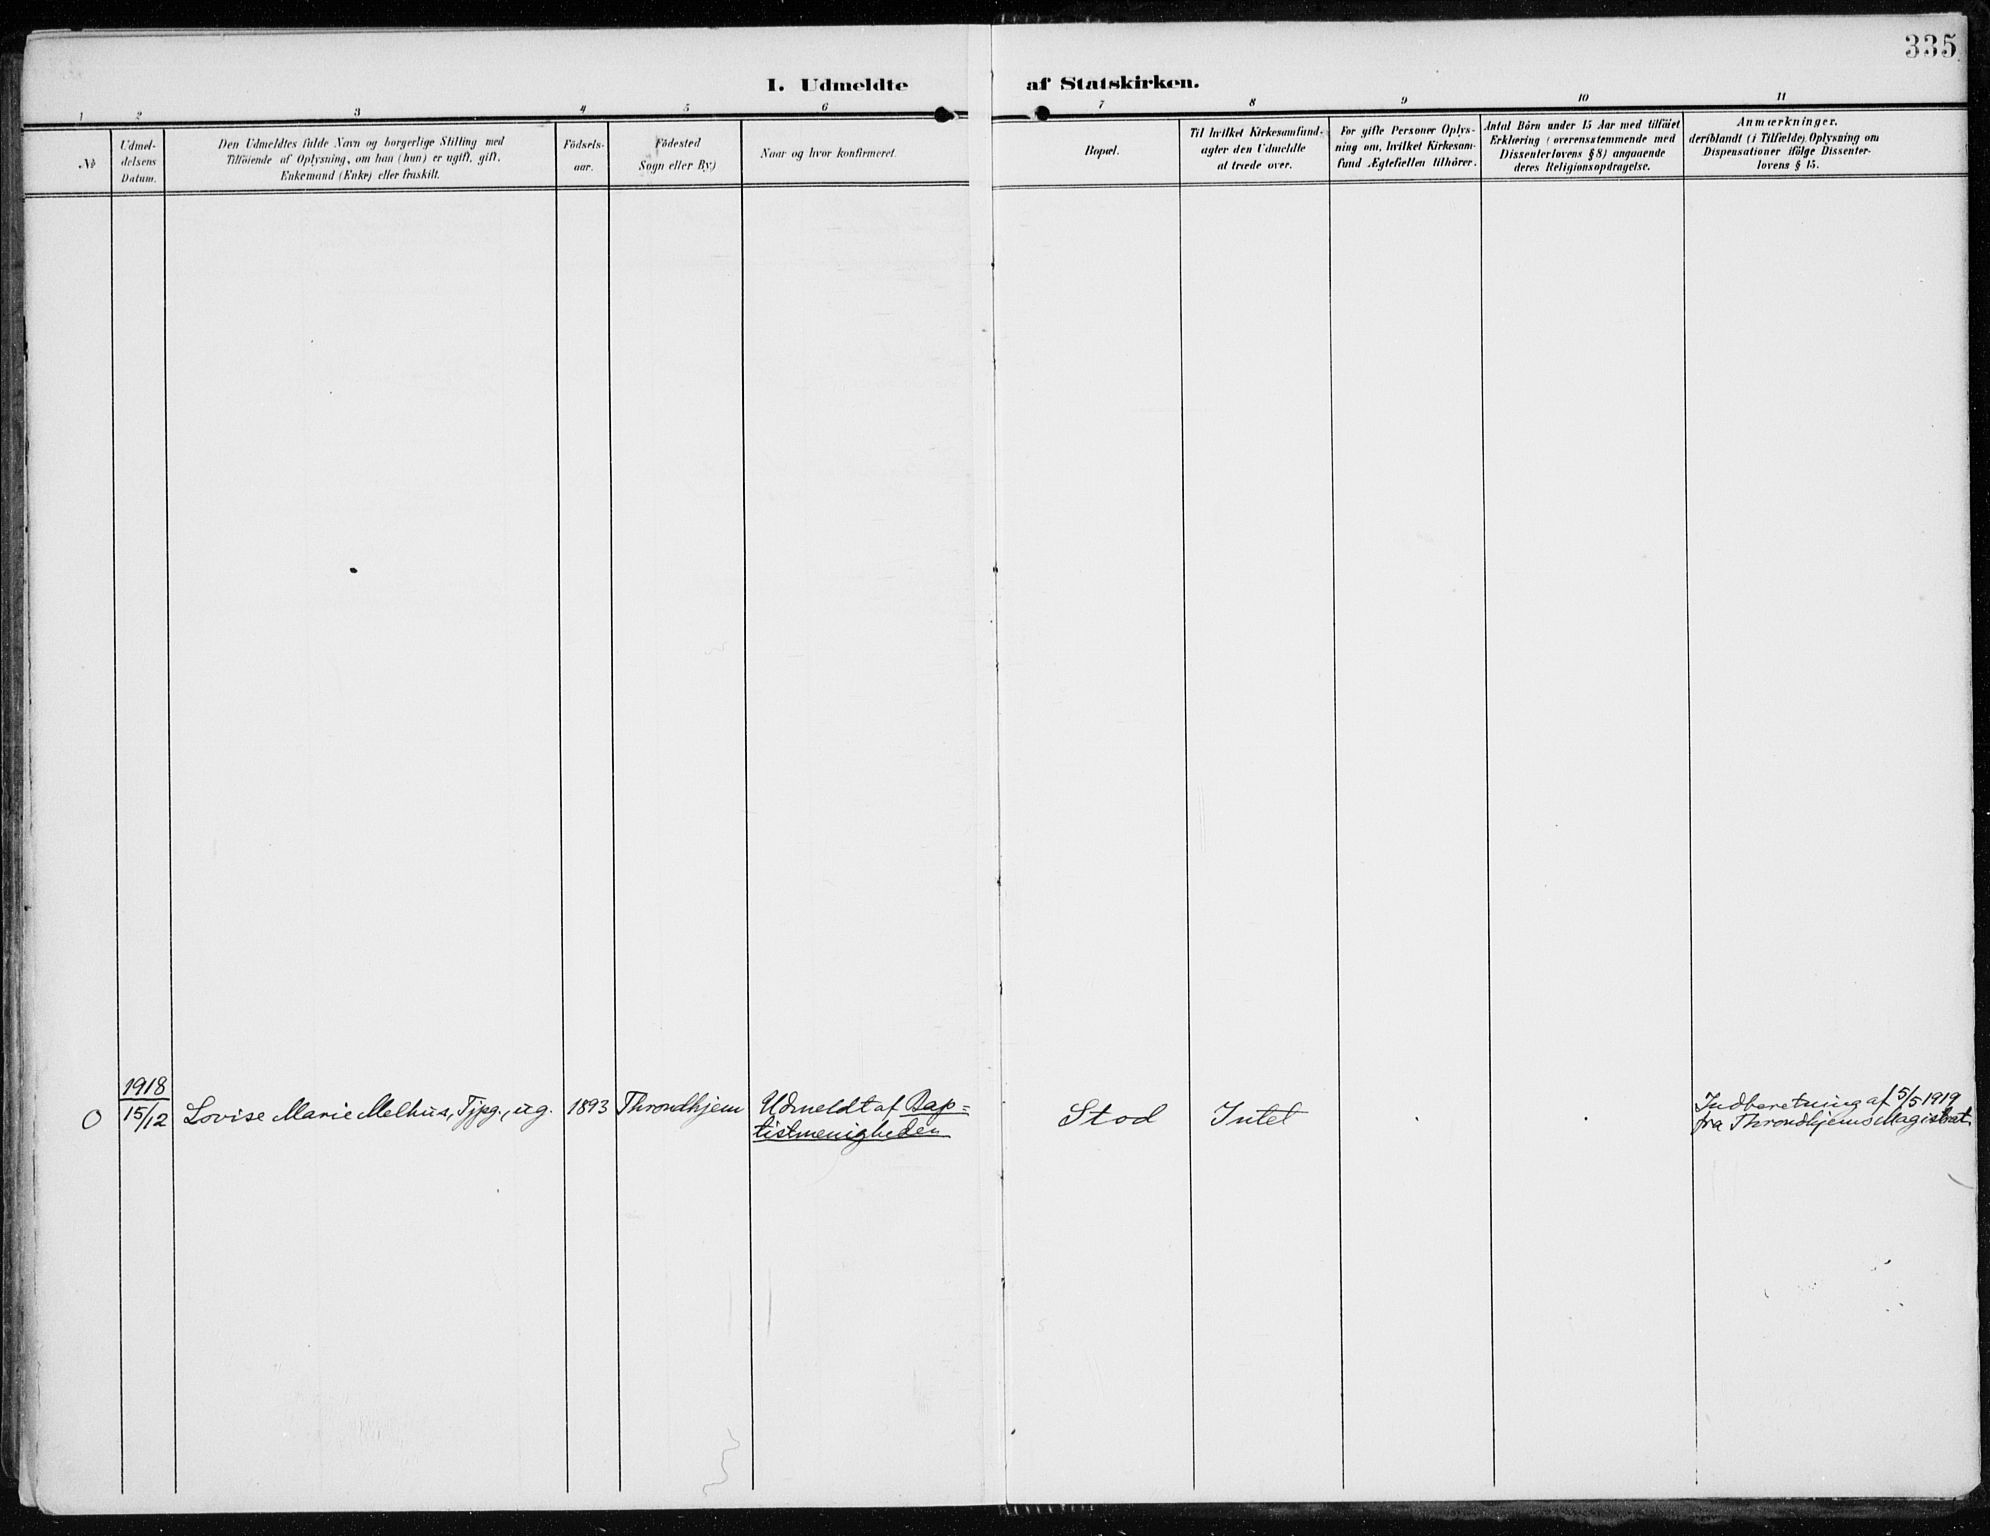 335
I. Udmeldte af Statskirken.
1 2 3 4 5 6 7 8 9 10 11
№
Udmel-
delsens
Datum.
Den Udmeldtes fulde Navn og borgerlige Stilling med
Tilföiende af Oplysning, om han (hun) er ugift, gift,
Enkemand (Enke) eller fraskilt.
Födsels-
aar.
Födested
Sogn eller By)
Naar og hvor konfirmeret.
Bopæl.
Til hvilket Kirkesamfund
agter den Udmeldte
at træde over.
For gifte Personer Oplys-
ning om, hvilket Kirkesam-
fund Ægtefællen tilhörer.
Antal Börn under 15 Aar med tilföiet
Erklæring (overensstemmende med
Dissenterlovens § 8) angaaende
deres Religionsopdragelse.
Anmærkninger,
deriblandt (i Tilfælde) Oplysning om
Dispensationer ifölge Dissenter-
lovens § 15.
1918
15/12
O
Lovise Marie Melhus, Tjpg., ug.
1893
Throndhjem
Udmeldt af Bap=
tistmenigheden
Stod
Intet
Indberetning af 5/5 1919
fra Throndhjems Magistrat.